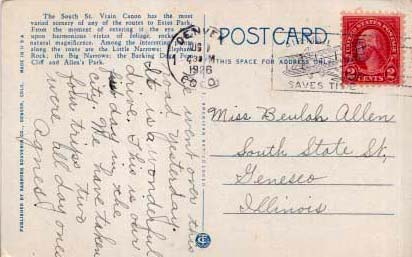 The South St. Vrain Canon has the most
varied scenery of any of the routes to Estes Park.
From the moment of entering it the eye
upon harmonious vistas of foliage, rocks
natural magnificence. Among the interesting
along the route are the Little Narrows; Elephant
Rock; the Big Narrows; the Barking Dog
Cliff and Allen's Park.
POSTCARD
THIS SPACE FOR ADDRESS ONLY
DENVER
1926
COLO
SAVES TIME
UNITED STATES POSTAGE
2 CENTS 2
MADE IN U.S.A.
PUBLISHED BY SANBORN SOUVENIR CO., DENVER, COLO.
went over this
road yesterday.
It is a wonderful
drive. This is our
day in the
city. We have taken
four trips two
were all day ones
Agnes.
Miss Beulah Allen
South State St,
Geneseo
Illinois